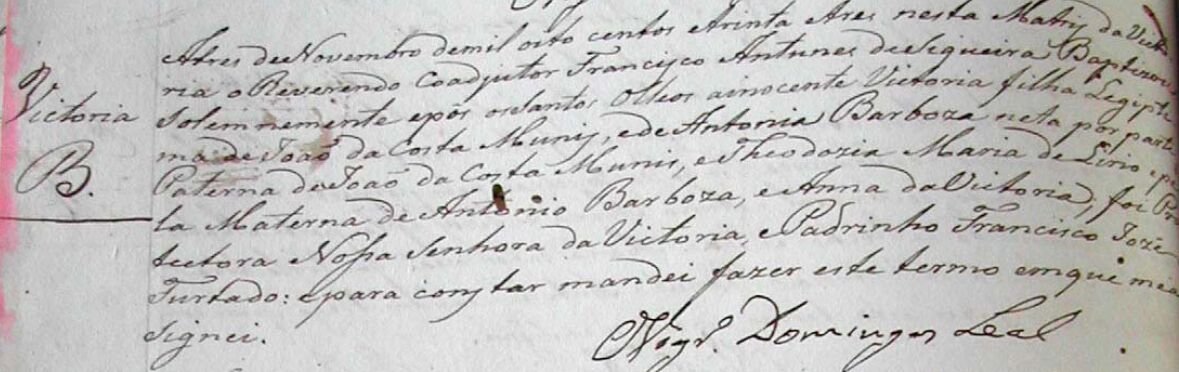 Victoria
B.
Atres de Novembro demil oito centos etrinta etres nesta Matris da Victo
ria o Reverendo Coadjutor Francisco Antunes de Siqueira Baptizou
Solemnemente epôs os Santos Olleos ainocente Victoria filha Legipti
ma de Joaõ da Costa Munis, ede Antonia Barboza neta por parte
Paterna de Joaõ da Costa Munis, e Theodozia Maria de Lirio epe
la Materna de Antonio Barboza, e Anna da Victoria, foi Pro
tectora Nossa Senhora da Victoria, e Padrinho Francisco Joze
Furtado: epara constar mandei fazer este termo emque mea
signei.
O Vigr.º Domingos Leal